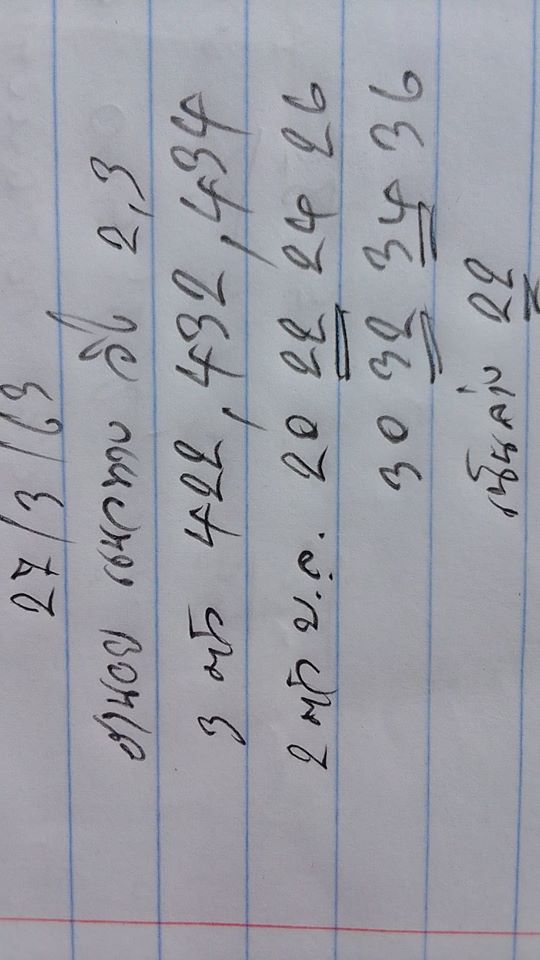 27/3/63
ฮานอย เลขวาง วิ่ง 2,3
3 ตัว 422, 432, 434
2 ตัว บ.ล. 20 22 24 26
30 32 34 36
เน้นล่าง 22